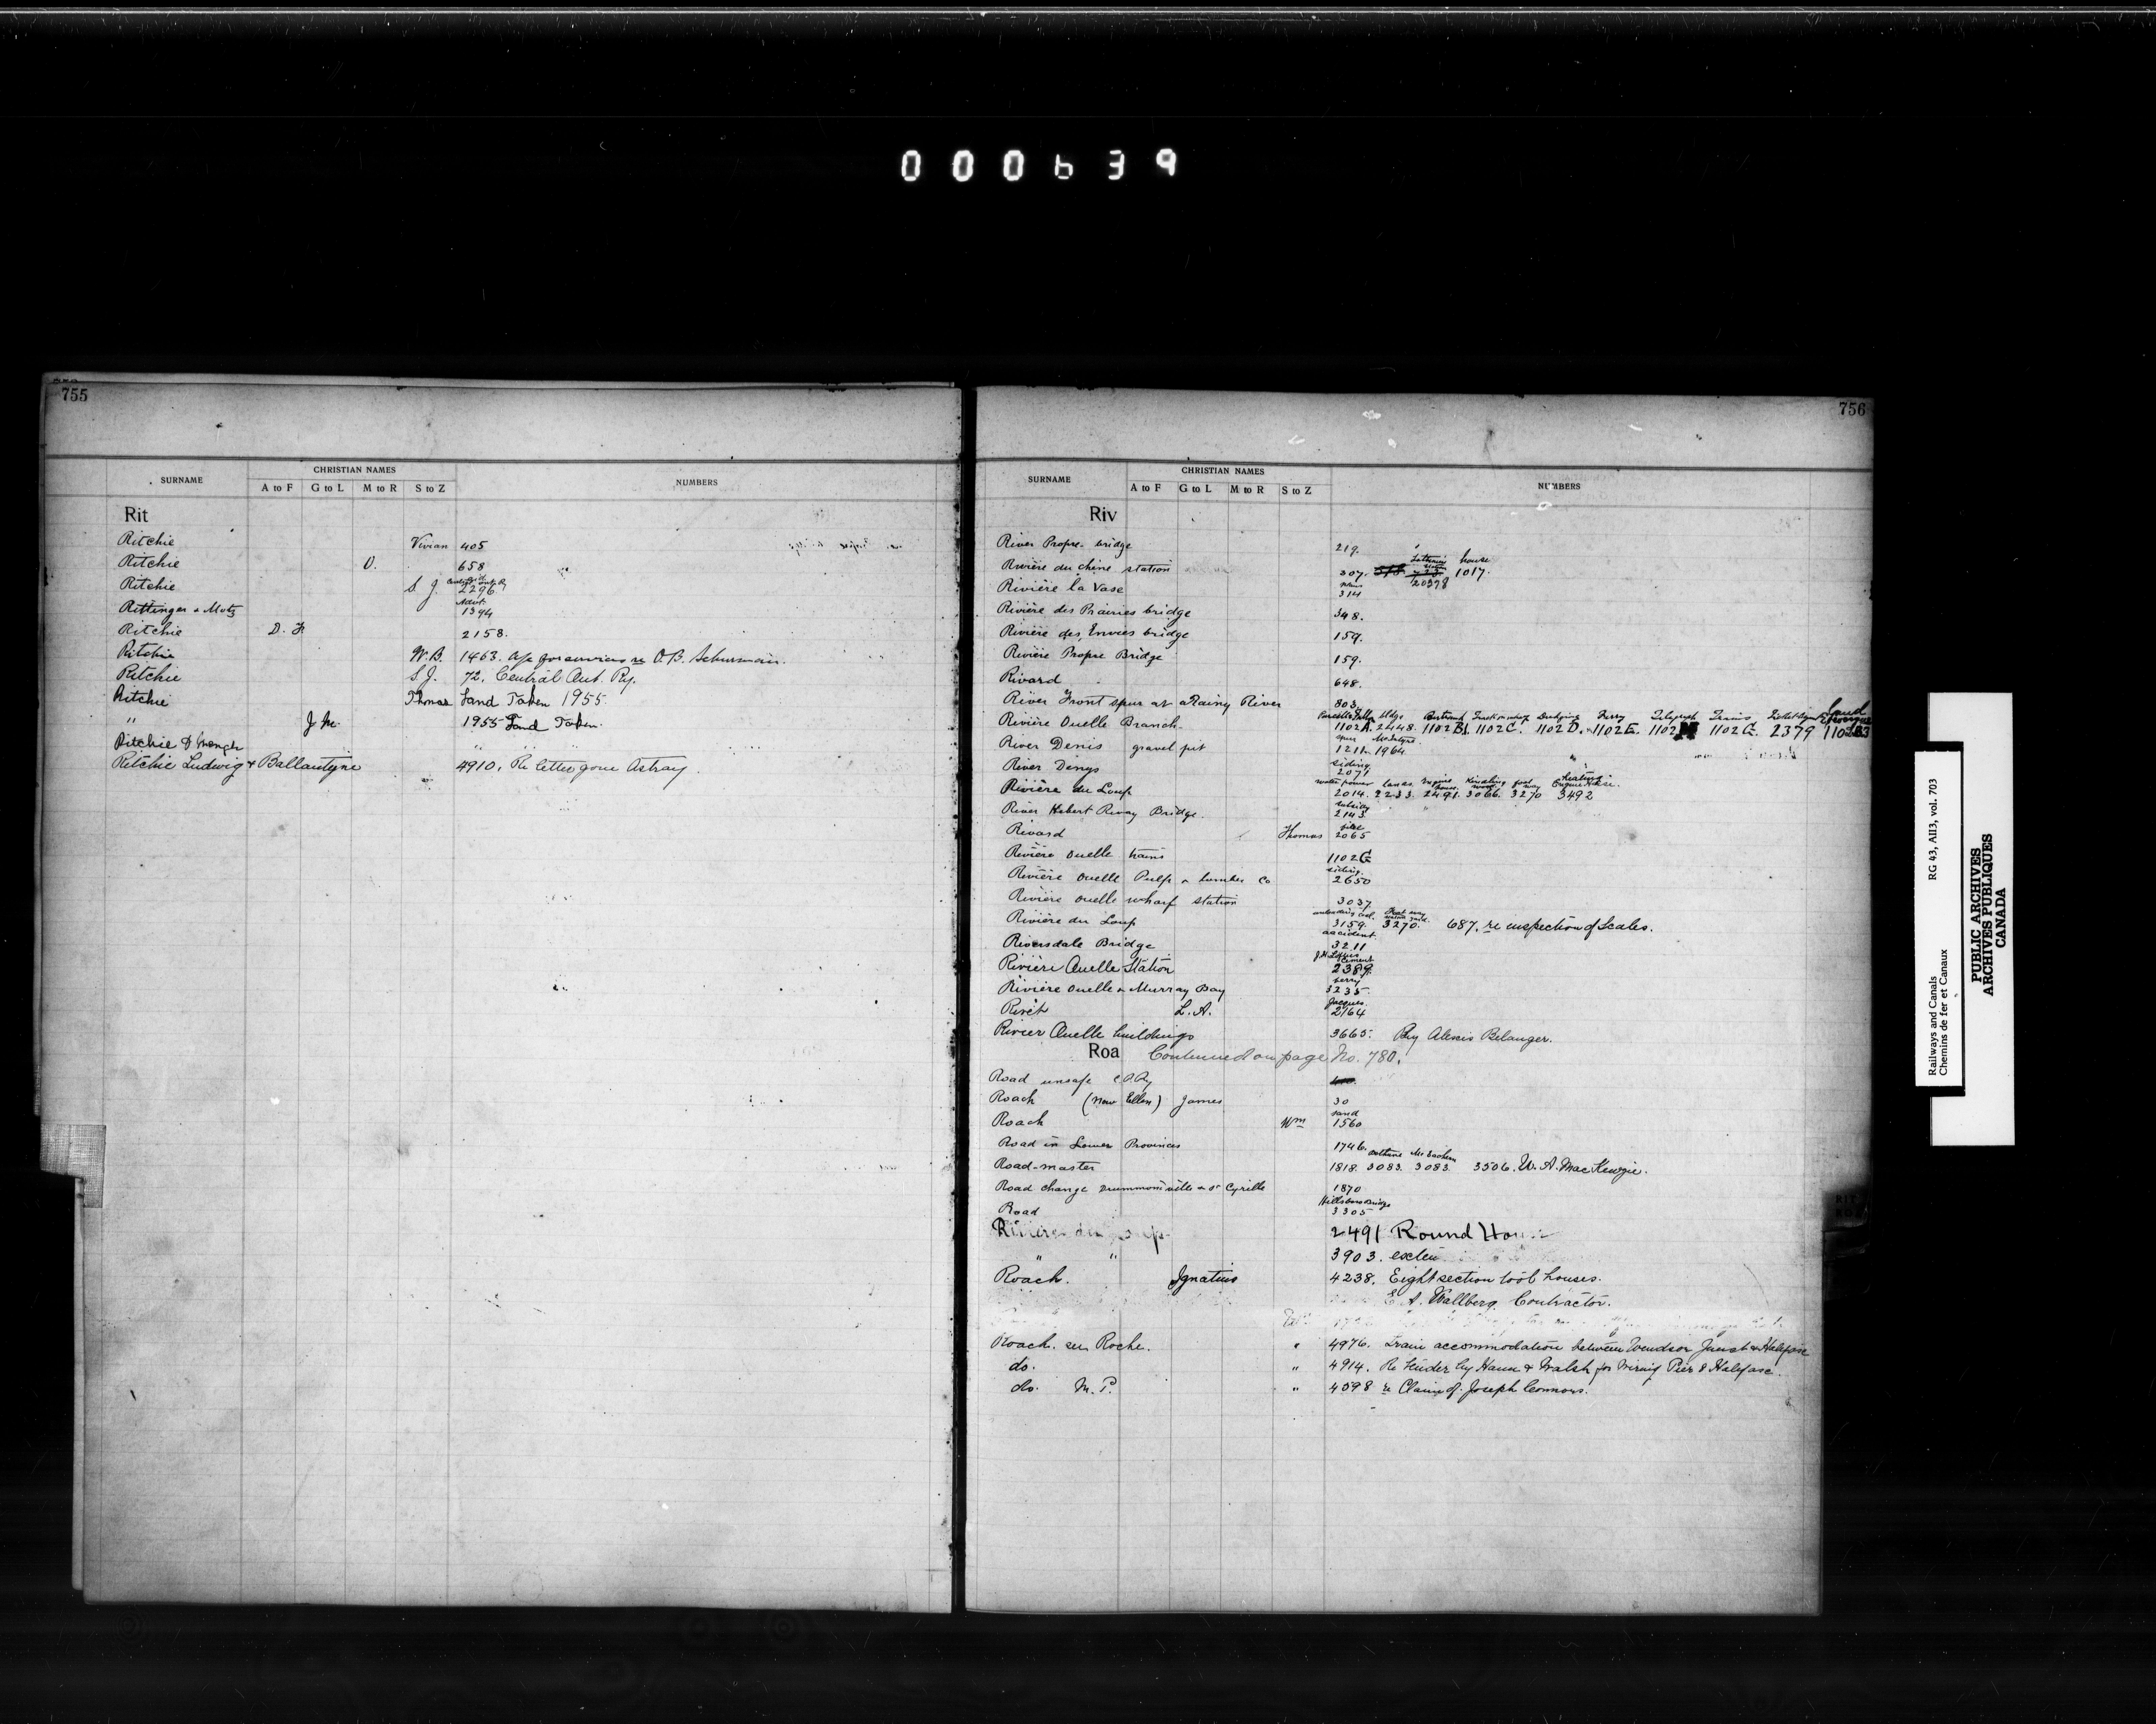 000639
755
SURNAME CHRISTIAN NAMES NUMBERS
A to F G to L M to R S to Z
Rit
Ritchie Vivian 405
Ritchie O. 658
Ritchie S. J. 2296
Rittinger & Motz Advt. 1394
Ritchie D. F. 2158.
Ritchie W.B. 1463. a/c for services re O.B. Schurman.
Ritchie S.J. 72. Central Ont. Ry.
Ritchie Thomas Land Taken 1955
" J. M. 1955 Land Taken.
Ritchie D " "
Ritchie Ludwig & Ballantyne 4910. Re letter gone Astray.
756
SURNAME CHRISTIAN NAMES NUMBERS
A to F G to L M to R S to Z
Riv
River Propre bridge 219.
Rivière du chêne station 307. house 1017.
20398
Rivière la Vase 314
Rivière des Prairies bridge 348.
Rivière des Envies bridge 159.
Rivière Propre Bridge 159.
Rivard 648.
River Front spur at Rainy River 803.
bldgs Trains Land
Rivière Ouelle Branch 1102A. 2448. 1102B1. 1102C. 1102D. 1102E. 1102 1102G. 2379
spur McIntyre
River Denis gravel pit 1211. 1964.
siding
River Denys 2071
water power engine house Kindling wood foot way heating Engine House.
Rivière du Loup 2014. 2233. 2491. 3066. 3270 3492
subsidy
River Hebert Rway Bridge. 2143
Rivard Thomas 2065
Rivière Ouelle trains 1102G
siding.
Rivière Ouelle Pulp & lumber Co 2650
Rivière Ouelle wharf station 3037
Rivière du Loup 3159. 3270. 687. re inspection of Scales.
accident.
Riversdale Bridge 3211
cement
Rivière Ouelle Station 2389.
ferry
Rivière Ouelle & Murray Bay 3235.
Jacques
Rivet L. A. 2764
Rivier Ouelle buildings 3665. By Alexis Belanger.
Roa Continued on page No. 780.
Road unsafe C.P.Ry
Roach (New Ellen) James 30
land
Roach Wm 1560
Road in Lower Provinces 1746.
McEachern
Road-master 1818. 3083. 3083. 3506. W. A. MacKenzie.
Road change Drummondville & St Cyrille 1870
Hillsboro Bridge
Road 3305
Riviere du 2491 Round
" " 3903.
Roach. Ignatius 4238. Eight section tool houses.
E. A. Wallberg. Contractor.
Roach. see Roche. " 4976. Train accommodation between Windsor Junct & Halifax
do. " 4914. Re tender by Hann & Walsh for wiring Pier 8 Halifax.
do. M.P. " 4098 re Claim of Joseph Connors.
Railways and Canals RG 43, AII3, vol. 703
Chemins de fer et Canaux
PUBLIC ARCHIVES
ARCHIVES PUBLIQUES
CANADA